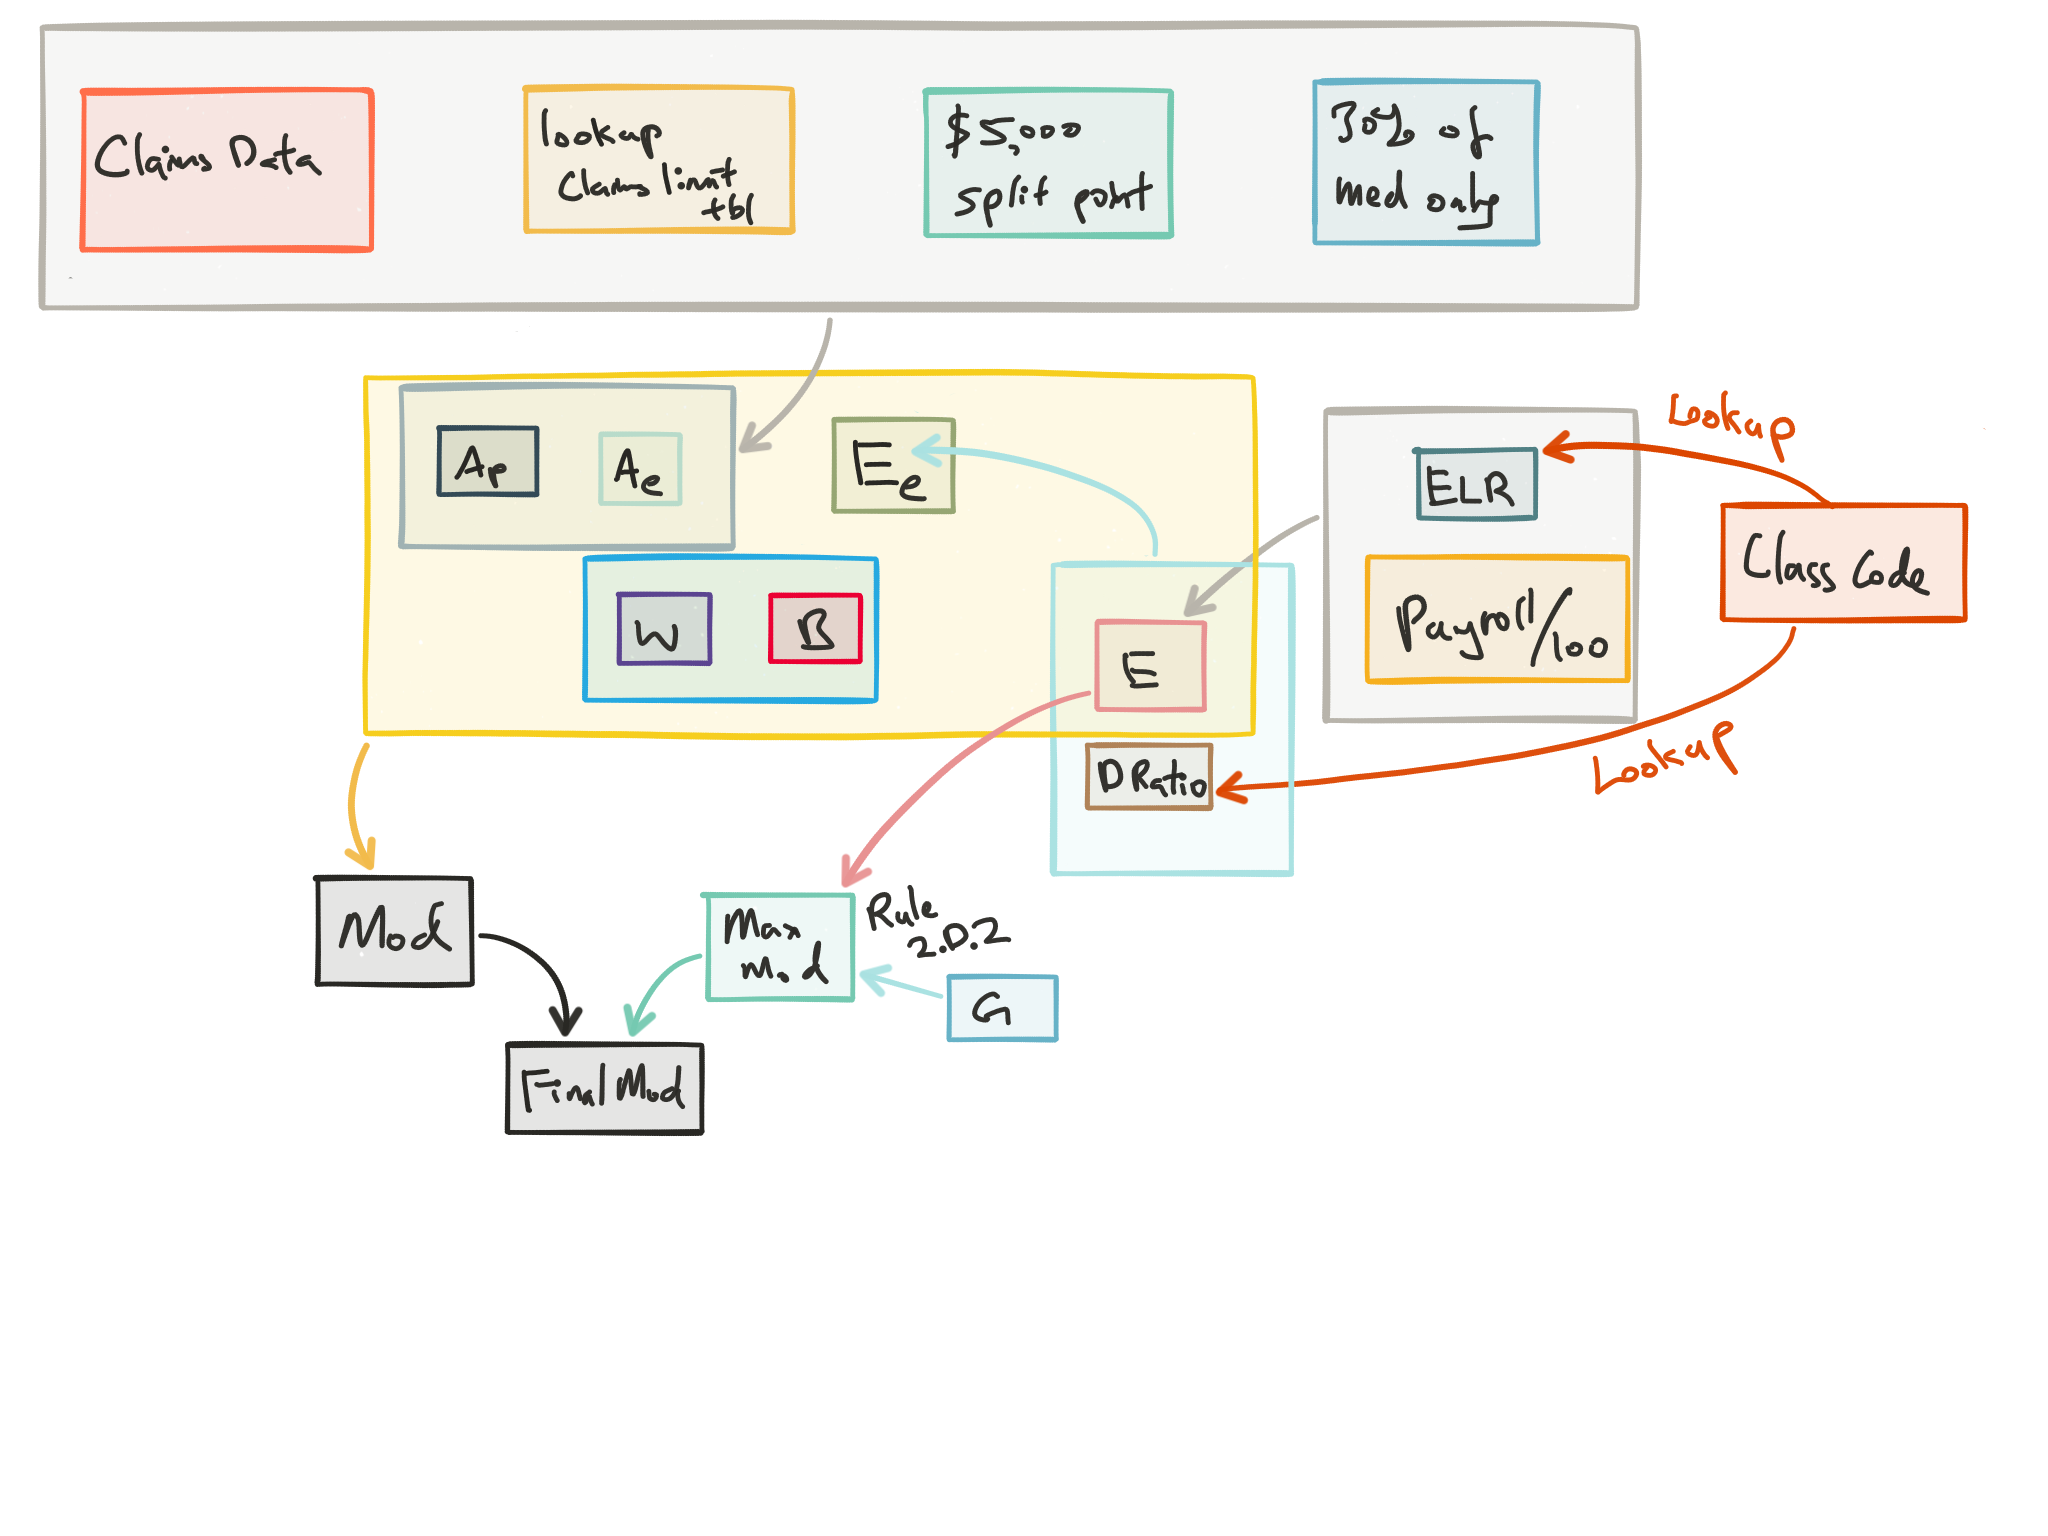 Claims Data
lookup
Claims limit
tbl
$5,000
split point
30% of
med only
Ap
Ae
Ee
W
B
E
D Ratio
ELR
Payroll/100
Lookup
Class Code
Lookup
Mod
Max
Mod
Rule
2.D.2
G
Final Mod